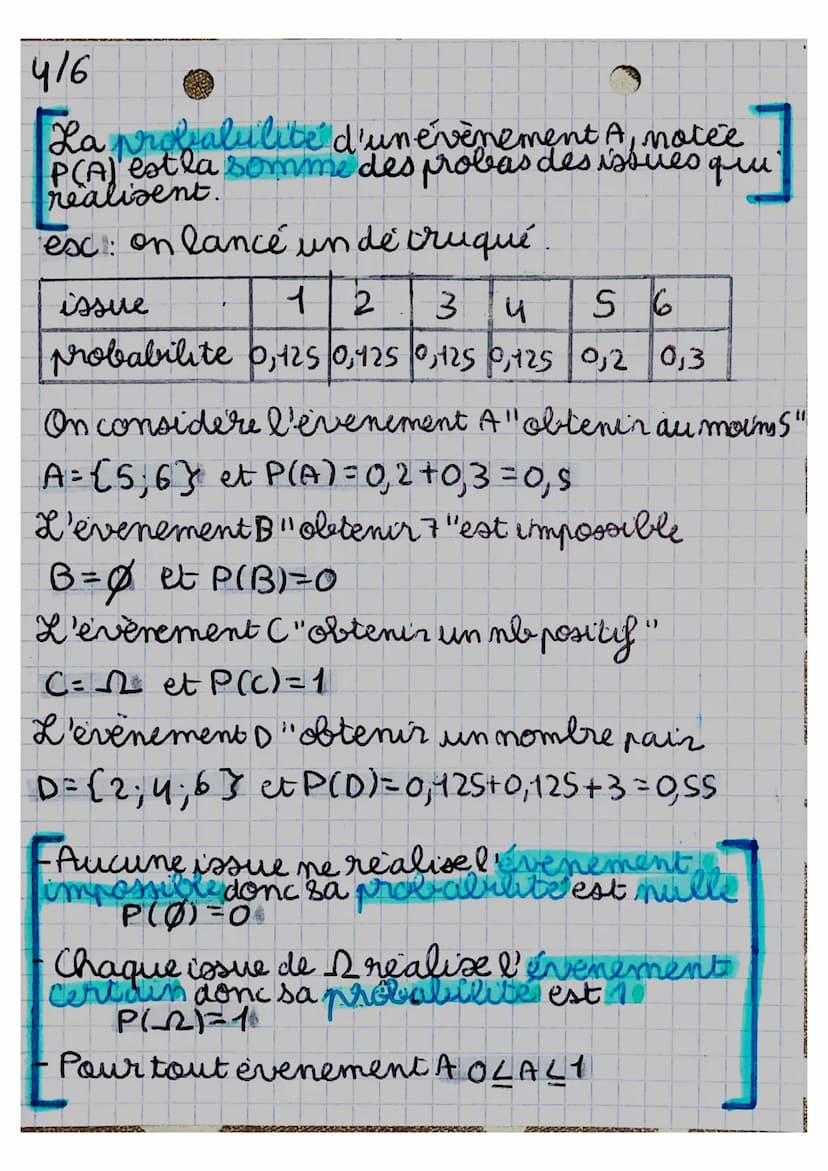 4/6
La probabilité d'un évènement A, notée
P(A) est la somme des probas des issues qui
réalisent.
ex : on lancé un dé truqué.
issue 1 2 3 4 5 6
probabilite 0,125 0,125 0,125 0,125 0,2 0,3
On considère l'évenement A "obtenir au moins 5"
A={5;6} et P(A)=0,2+0,3=0,5
L'évenement B "obtenir 7" est impossible
B=∅ et P(B)=0
L'évènement C "obtenir un nb positif"
C=Ω et P(C)=1
L'évènement D "obtenir un nombre pair
D={2;4;6} et P(D)=0,125+0,125+3=0,55
- Aucune issue ne réalise l'évenement
impossible donc sa probabilité est nulle
P(∅)=0
- Chaque issue de Ω réalise l'évenement
certain donc sa probabilité est 1
P(Ω)=1
- Pour tout évenement A 0≤A≤1